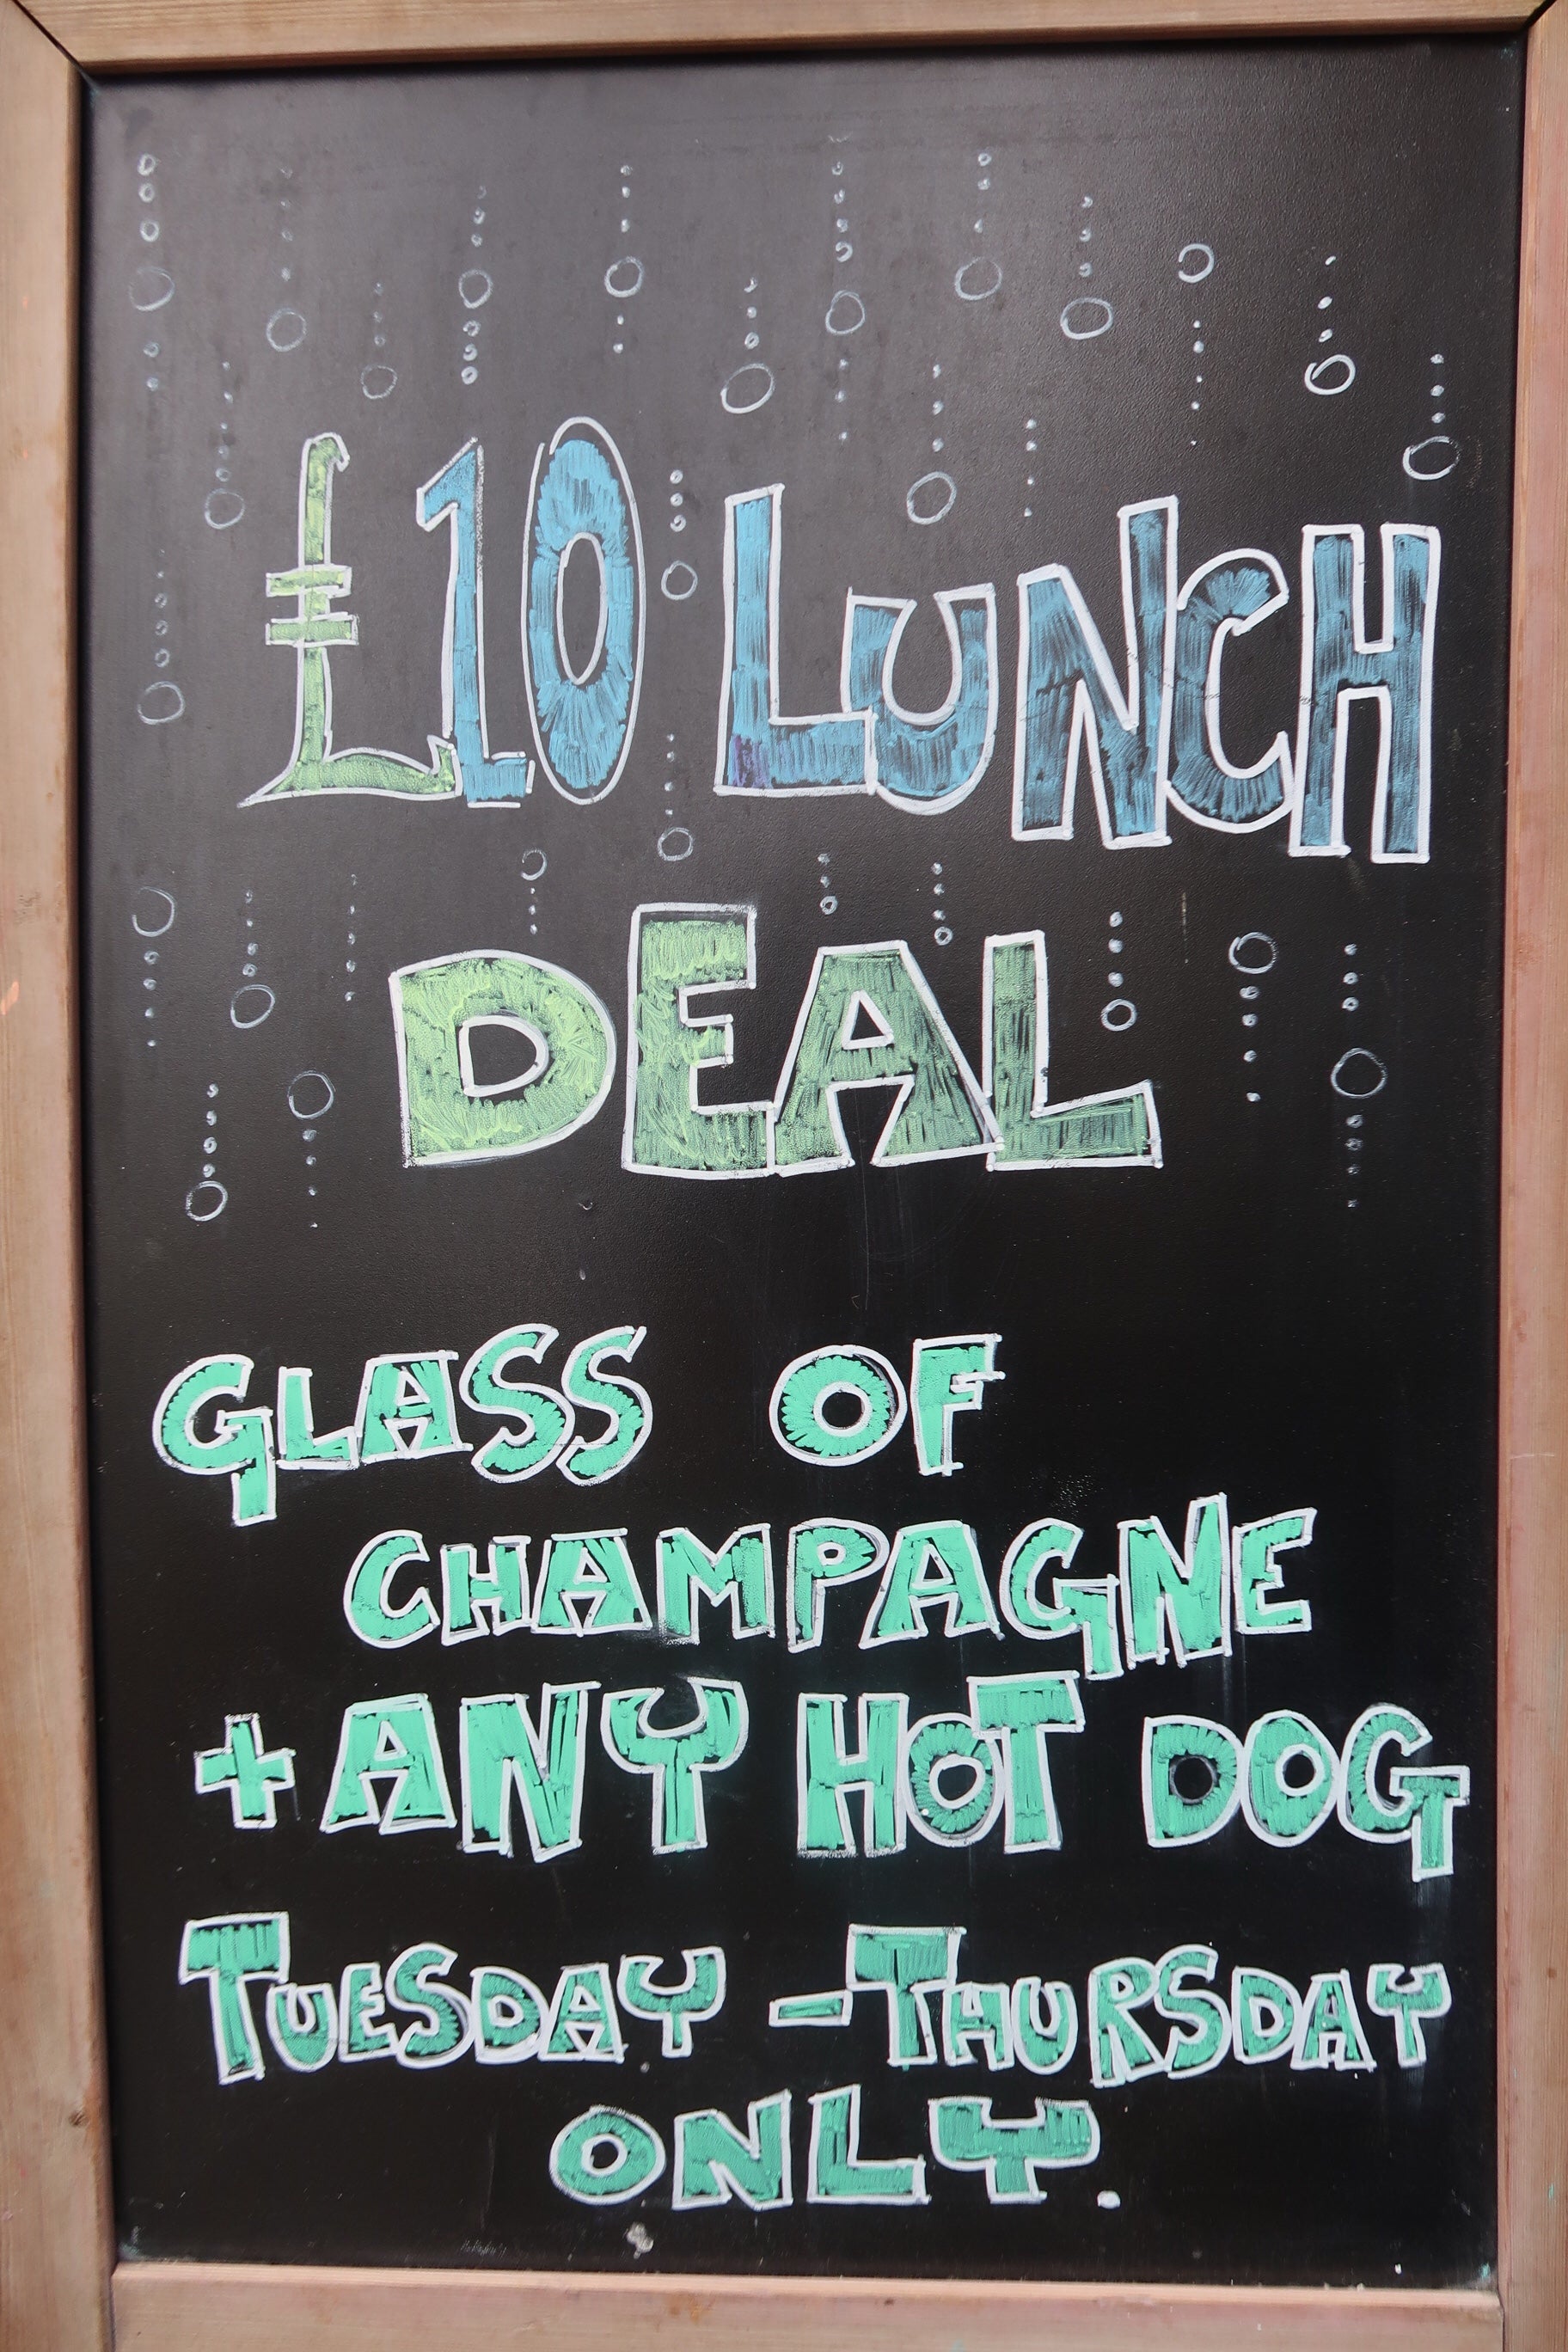 £10 LUNCH
DEAL
GLASS OF
CHAMPAGNE
+ ANY HOT DOG
TUESDAY - THURSDAY
ONLY.